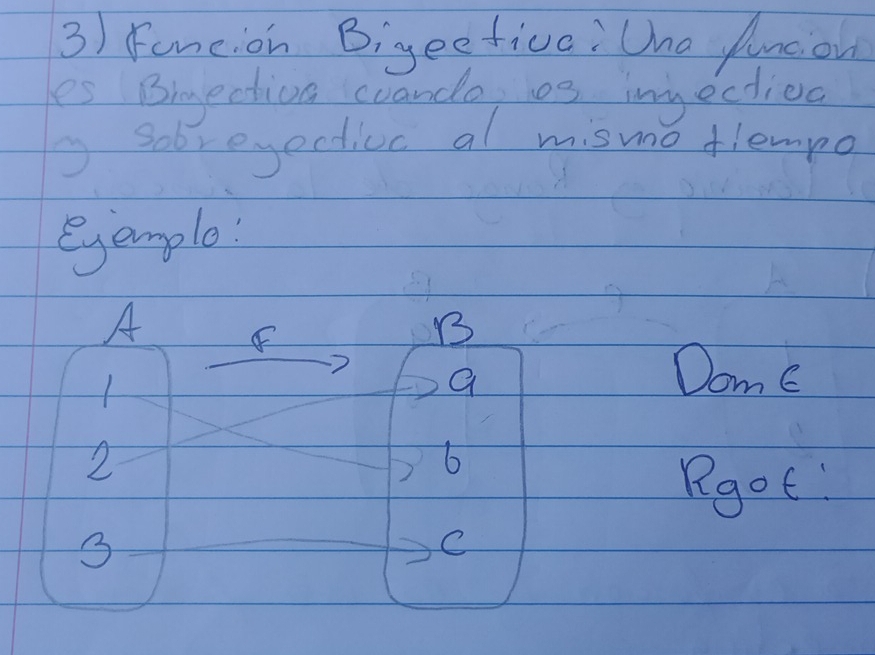 3) Función Biyectiva: Una función
es Biyectiva cuando es inyectiva
y Sobreyectiva al mismo tiempo
Ejemplo:
A F B
1 a Dom E
2 b Rgo E:
3 c